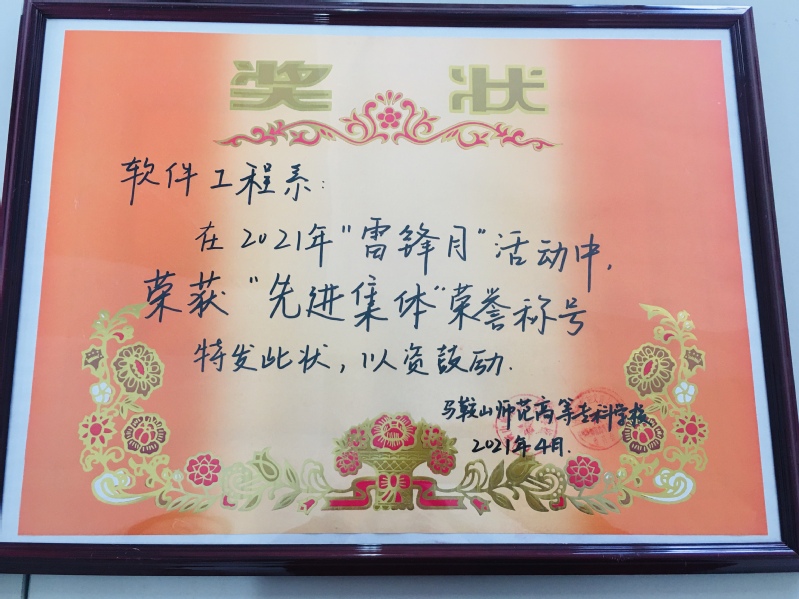 奖状
软件工程系：
在2021年“雷锋月”活动中，
荣获“先进集体”荣誉称号
特发此状，以资鼓励.
马鞍山师范高等专科学校
2021年4月.